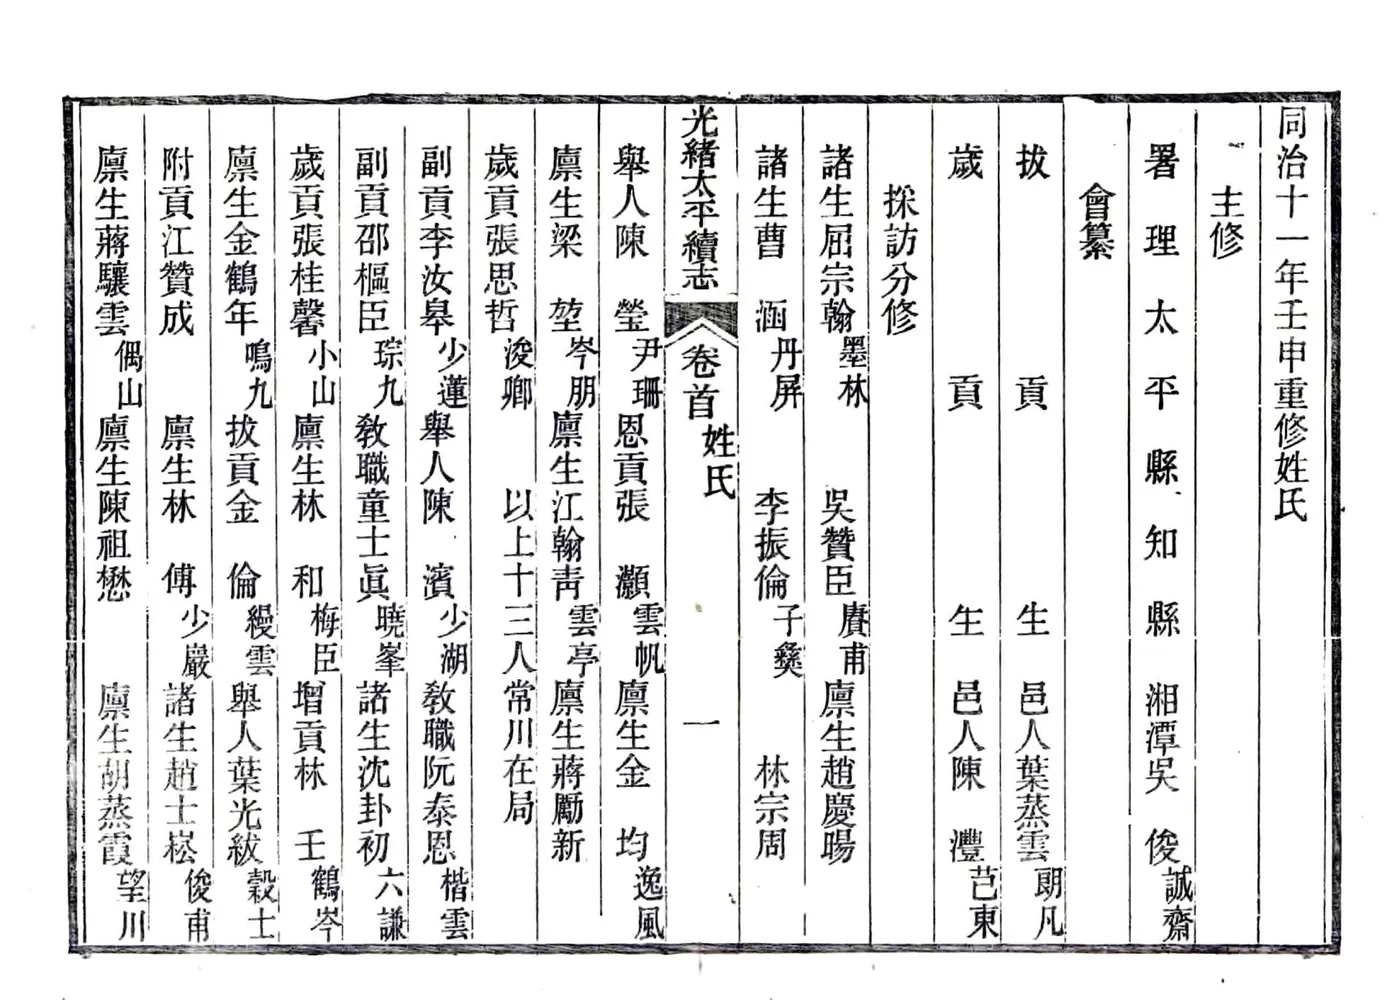 同治十一年壬申重修姓氏
主修
署理太平縣知縣湘潭吳俊誠齋
會纂
拔貢生邑人葉蒸雲朗凡
歲貢生邑人陳灃芑東
採訪分修
諸生屈宗翰墨林 吳贊臣賡甫 廩生趙慶暘
諸生曹涵丹屏 李振倫子彝 林宗周
光緒太平續志 卷首 姓氏 一
舉人陳瑩尹珊 恩貢張灝雲帆 廩生金均逸風
廩生梁堃岑朋 廩生江翰靑雲亭 廩生蔣勵新
歲貢張思哲浚卿 以上十三人常川在局
副貢李汝皋少蓮 舉人陳濱少湖 敎職阮泰恩楷雲
副貢邵樞臣琮九 敎職童士眞曉峯 諸生沈卦初六謙
歲貢張桂馨小山 廩生林和梅臣 增貢林壬鶴岑
廩生金鶴年鳴九 拔貢金倫縵雲 舉人葉光紱穀士
附貢江贊成 廩生林傅少巖 諸生趙士崧俊甫
廩生蔣驤雲偶山 廩生陳祖懋 廩生胡蒸霞望川